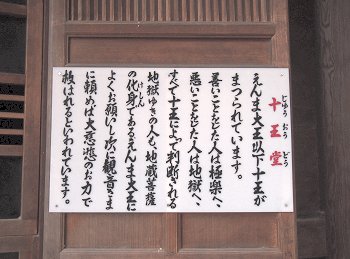 十王堂
じゅう おう どう
えんま大王以下十王が
まつられています。
善いことをした人は極楽へ、
悪いことをした人は地獄へ、
すべて十王によって判断される
地獄ゆきの人も、地蔵菩薩
の化身であるえんま大王に
けしん
よくお願いし、次に観音さま
に頼めば大慈悲のお力で
救はれるといわれています。